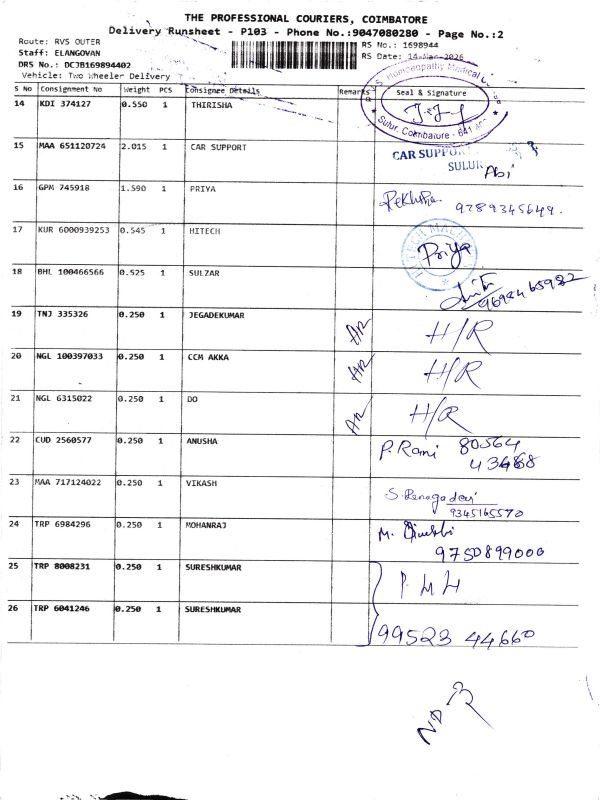 THE PROFESSIONAL COURIERS, COIMBATORE
Delivery Runsheet - P103 - Phone No.:9047080280 - Page No.:2
Route: RVS OUTER
RS No.: 1698944
Staff: ELANGOVAN
RS Date: 14-Mar-2026
DRS No.: DCJB169894402
Vehicle: Two Wheeler Delivery
S No Consignment No Weight PCS Consignee Details Remarks Seal & Signature
14 KDI 374127 0.550 1 THIRISHA
Homoeopathy Medical
Sulur, Coimbatore - 641
15 MAA 651120724 2.015 1 CAR SUPPORT
CAR SUPPORT
SULUR
Abi
16 GPM 745918 1.590 1 PRIYA
Rekha 9289345649.
17 KUR 6000939253 0.545 1 HITECH
Priya
18 BHL 100466566 0.525 1 SULZAR
9698465982
19 TNJ 335326 0.250 1 JEGADEKUMAR H/R
20 NGL 100397033 0.250 1 CCM AKKA H/R
21 NGL 6315022 0.250 1 DO H/R
22 CUD 2560577 0.250 1 ANUSHA P. Rani 80564
43688
23 MAA 717124022 0.250 1 VIKASH
S. Renugadevi
9345165570
24 TRP 6984296 0.250 1 MOHANRAJ M.
9750899000
25 TRP 8008231 0.250 1 SURESHKUMAR
26 TRP 6041246 0.250 1 SURESHKUMAR
99523 44660
ND